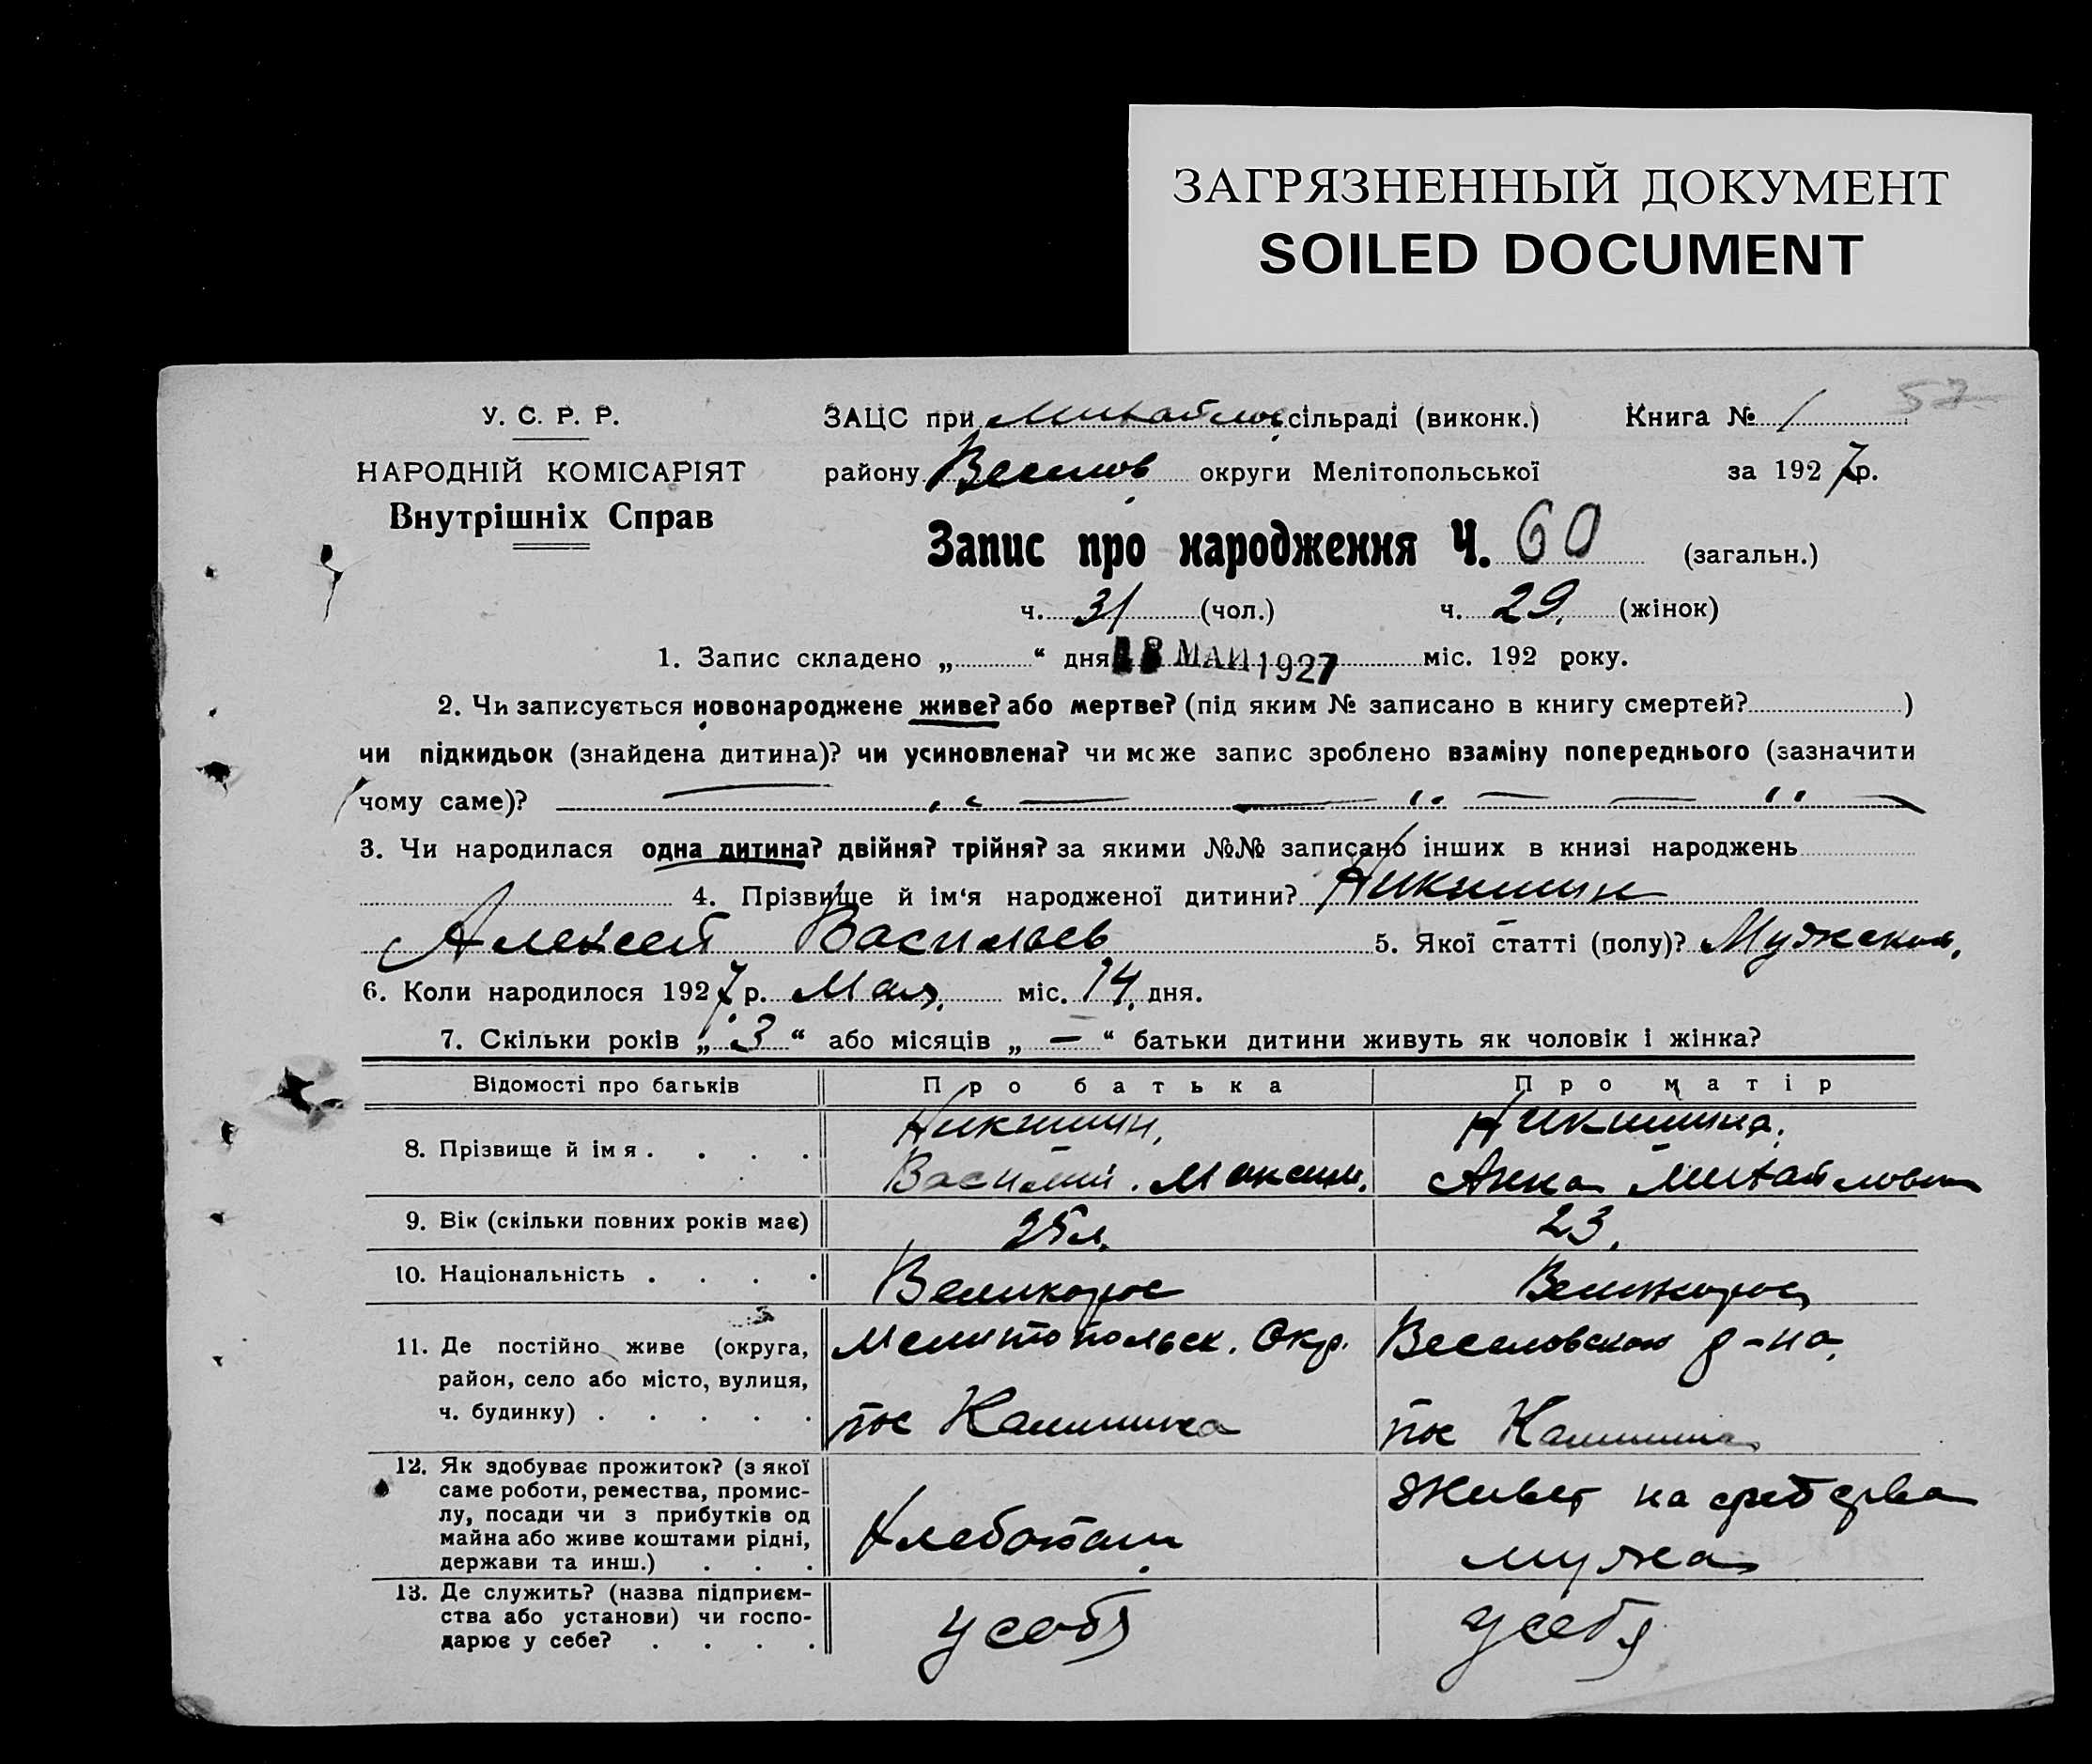 ЗАГРЯЗНЕННЫЙ ДОКУМЕНТ
SOILED DOCUMENT
52
У. С. Р. Р.
НАРОДНІЙ КОМІСАРІЯТ
Внутрішніх Справ
ЗАЦС при Михайлов сільраді (виконк.) Книга № 1
району Веселов округи Мелітопольської за 1927 р.
Запис про народження Ч. 60 (загальн.)
ч. 31 (чол.) ч. 29. (жінок)
1. Запис складено „ “ дня 18 МАИ 1927 міс. 192 року.
2. Чи записується новонароджене живе? або мертве? (під яким № записано в книгу смертей? )
чи підкидьок (знайдена дитина)? чи усиновлена? чи може запис зроблено взаміну попереднього (зазначити
чому саме)? — „ — — „ — — „ —
3. Чи народилася одна дитина? двійня? трійня? за якими №№ записано інших в книзі народжень
4. Прізвище й ім‘я народженої дитини? Никишин
Алексей Васильев 5. Якої статті (полу)? Мужской.
6. Коли народилося 1927 р. Мая. міс. 14. дня.
7. Скільки років „ 3 “ або місяців „ — “ батьки дитини живуть як чоловік і жінка?
Відомості про батьків Про батька Про матір
8. Прізвище й ім я . . . . Никишин, Никишина,
Василий. Максим. Анна Михайловна
9. Вік (скільки повних років має) 25 л. 23.
10. Національність . . . . Великорос Великорос
11. Де постійно живе (округа, Мелитопольск. Окр. Веселовского р-на,
район, село або місто, вулиця,
ч. будинку) . . . . . пос Калинина пос Калинина
12. Як здобуває прожиток? (з якої
саме роботи, ремества, промис-
лу, посади чи з прибутків од
майна або живе коштами рідні,
держави та инш.) . . . Хлебопаш. Живет на средства
мужа
13. Де служить? (назва підприєм-
ства або установи) чи госпо-
дарює у себе? . . . . у себя у себя